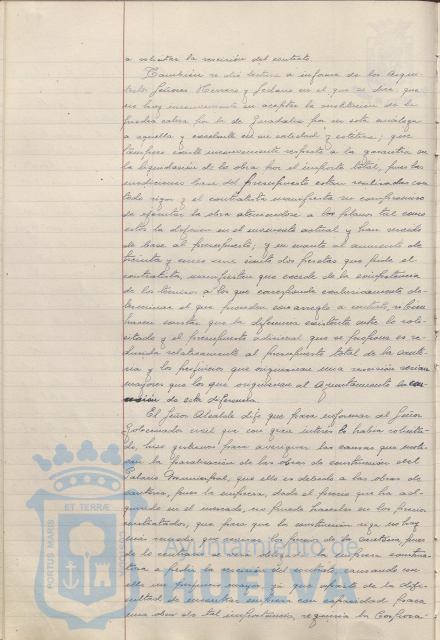 a solicitar la rescisión del contrato.
También se dió lectura a informe de los Arqui-
tectos Señores Herrero y Sedano en el que se dice, que
no hay inconveniente en aceptar la sustitución de la
piedra caliza por la de ser esta análoga
a aquella y excelente en su calidad y estética; que
tampoco existe inconveniente respecto a la garantía en
la liquidación de la obra por el importe total, pues las
mediciones base del presupuesto están realizadas con
todo rigor y el contratista manifiesta se compromiso
de ejecutar la obra ateniendose a los planos tal como
estos la definen en el momento actual y han servido
de base al presupuesto; y en cuanto al aumento de
treinta y cinco mil ciento dos pesetas que pide el
contratista, manifiestan que excede de la competencia
de los técnicos a los que corresponde exclusivamente de-
terminar el que procede con arreglo a contrato, si bien
hacen constar que la diferencia existente entre lo soli-
citado y el presupuesto adicional que se propone es re-
ducida relativamente al presupuesto total de la cante-
ria y los perjuicios que originaría una rescisión serian
mayores que los que originarían al Ayuntamiento la con-
cesión de esta diferencia.
El Señor Alcalde dijo que para informar al Señor
Gobernador civil que con gran interes lo había solicita-
do, hizo gestiones para averiguar las causas que moti-
van la paralización de las obras de construcción del
Palacio Municipal, que ello es debido a las obras de
cantería, pues la empresa, dado el precio que ha ad-
quirido en el mercado, no puede hacerlas en los precios
contratados, que para que la construcción siga no hay
más remedio que aumentar los precios de la cantería, pues
de lo contrario la empresa construc-
tora a pedir la rescisión del contrato, causando con
ello un perjuicio mayor, ya que aparte de la difi-
cultad de encontrar empresa con capacidad para
una obra de tal importancia, requeriría la confeca-
PORTUS MARIS
ET TERRÆ
CUSTODIA
Ayuntamiento de
HUELVA